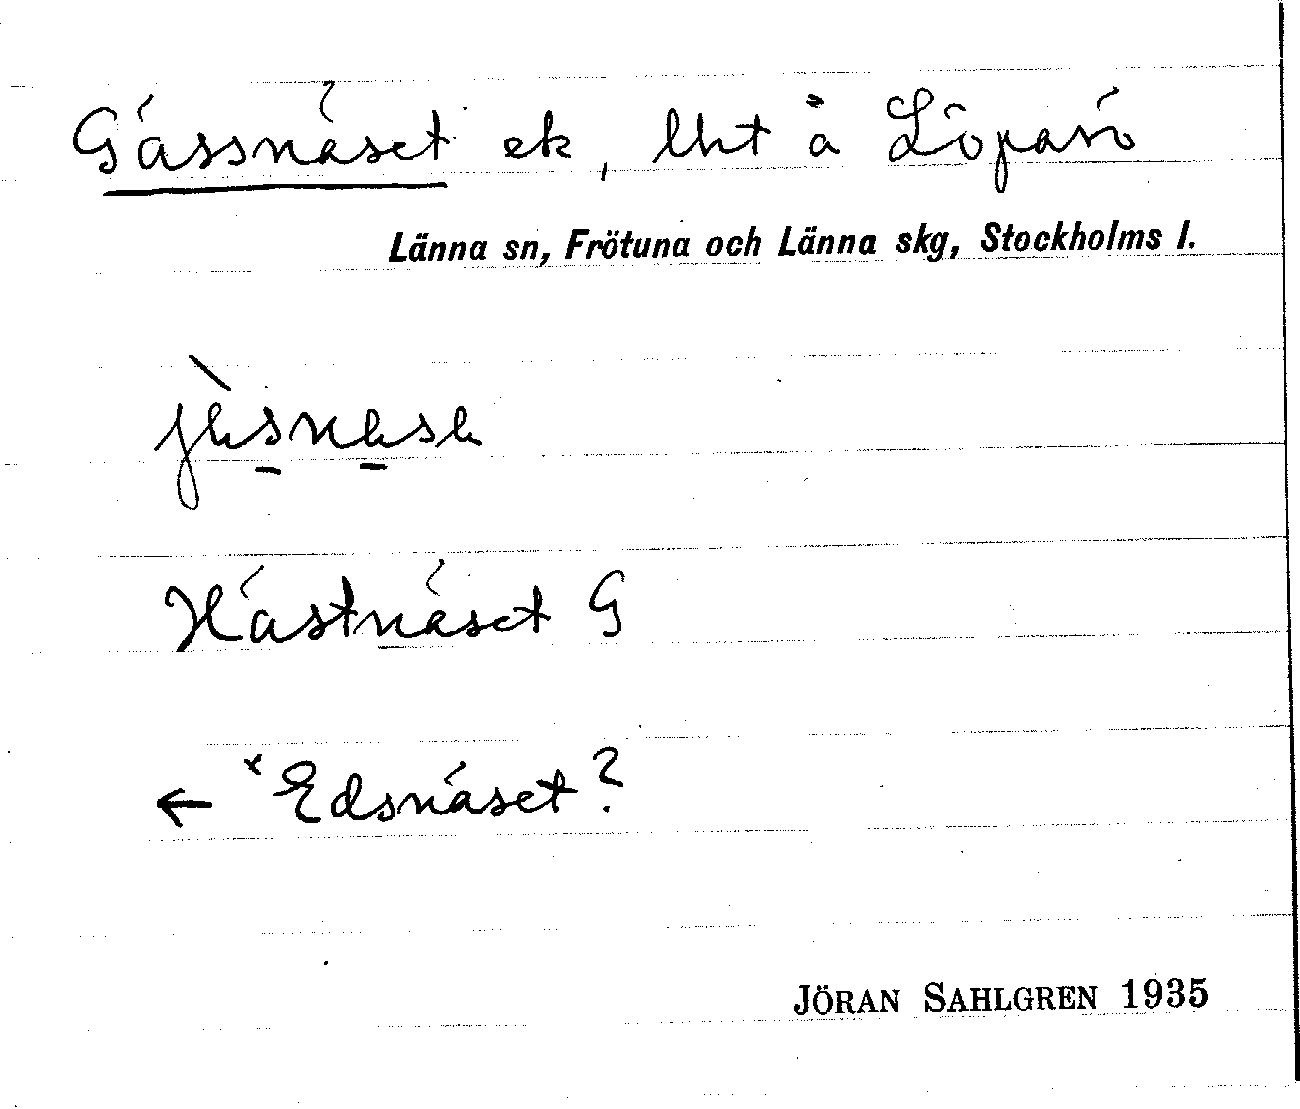 Gässnäset ek, lht å Löparö
Länna sn, Frötuna och Länna skg, Stockholms l.
Hästnäset G
← *Edsnäset?
JÖRAN SAHLGREN 1935